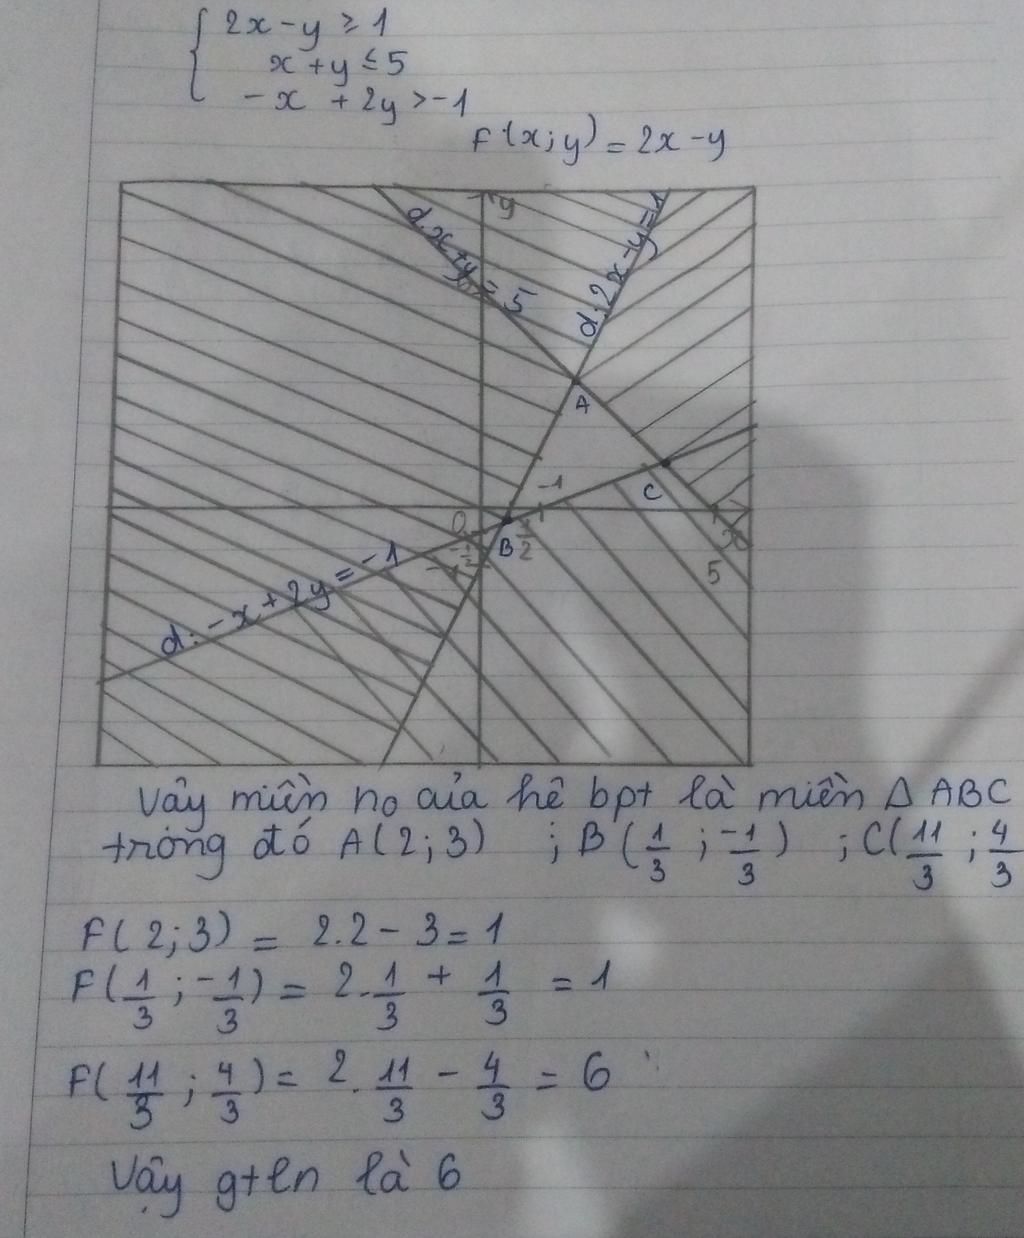 2x - y ≥ 1
x + y ≤ 5
-x + 2y > -1
F(x;y) = 2x - y
y
d: x+y = 5
d: 2x - y = 1
A
-1
C
O
B
1/2
-1/2
-1
x
5
d: -x + 2y = -1
Vậy miền no của hê bpt là miền Δ ABC
trong đó A(2;3) ; B(1/3 ; -1/3) ; C(11/3 ; 4/3
F(2;3) = 2.2 - 3 = 1
F(1/3 ; -1/3) = 2.1/3 + 1/3 = 1
F(11/3 ; 4/3) = 2.11/3 - 4/3 = 6
Vậy gtln là 6